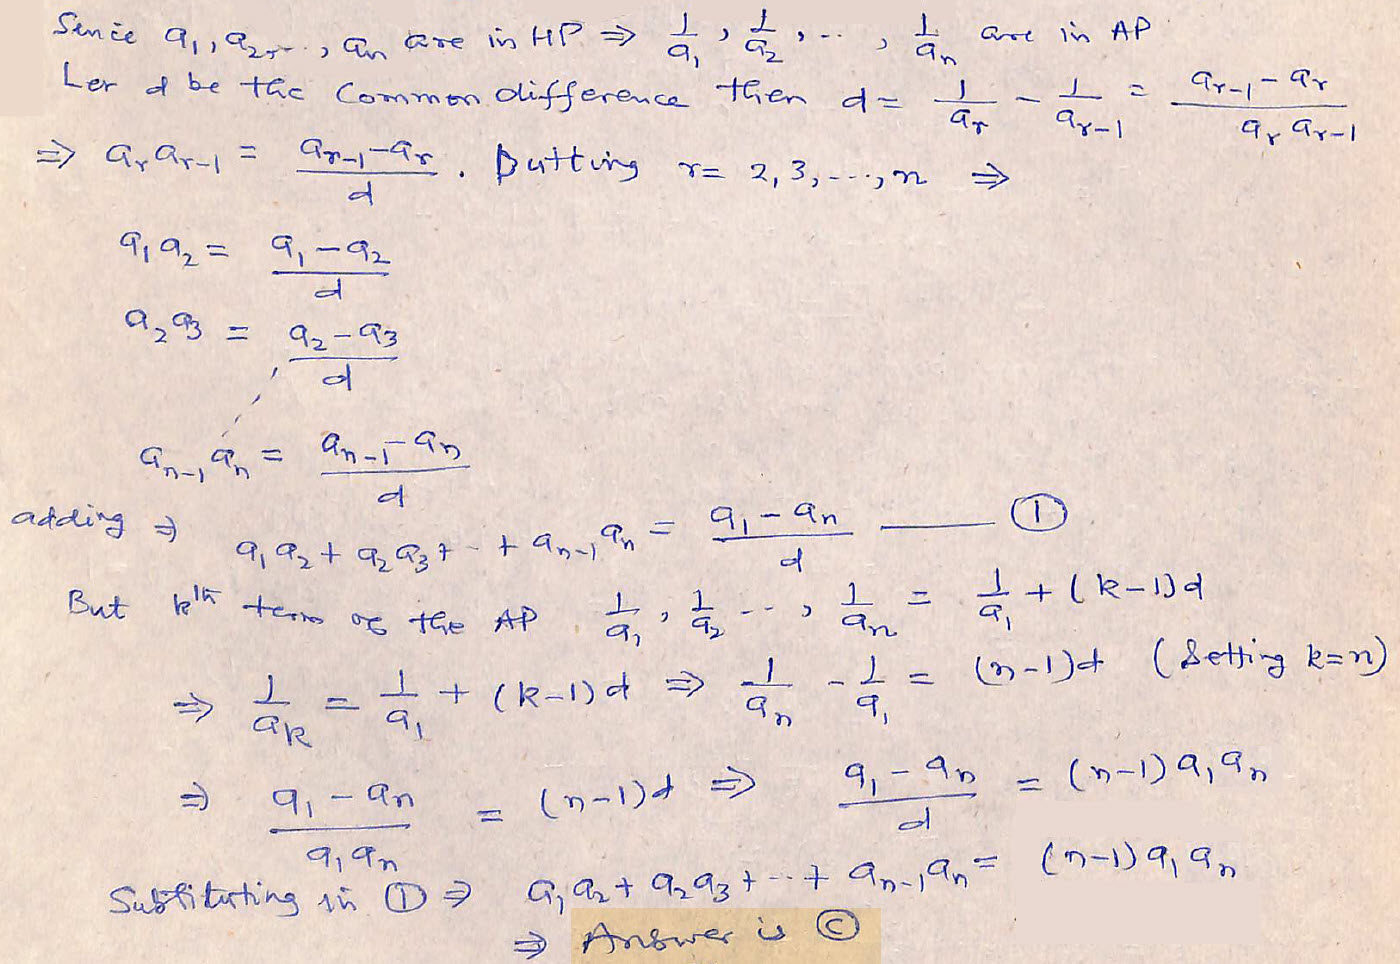 Since a₁, a₂, ..., aₙ are in HP ⇒ 1/a₁, 1/a₂, ..., 1/aₙ are in AP
Let d be the common difference then d = 1/aᵣ - 1/aᵣ₋₁ = (aᵣ₋₁ - aᵣ)/(aᵣ aᵣ₋₁)
⇒ aᵣ aᵣ₋₁ = (aᵣ₋₁ - aᵣ)/d . Putting r = 2, 3, ..., n ⇒
a₁ a₂ = (a₁ - a₂)/d
a₂ a₃ = (a₂ - a₃)/d
aₙ₋₁ aₙ = (aₙ₋₁ - aₙ)/d
adding ⇒ a₁ a₂ + a₂ a₃ + .. + aₙ₋₁ aₙ = (a₁ - aₙ)/d —— ①
But kth term of the AP 1/a₁, 1/a₂ ..., 1/aₙ = 1/a₁ + (k-1)d
⇒ 1/aₖ = 1/a₁ + (k-1)d ⇒ 1/aₙ - 1/a₁ = (n-1)d (Setting k=n)
⇒ (a₁ - aₙ)/(a₁ aₙ) = (n-1)d ⇒ (a₁ - aₙ)/d = (n-1) a₁ aₙ
Substituting in ① ⇒ a₁ a₂ + a₂ a₃ + ... + aₙ₋₁ aₙ = (n-1) a₁ aₙ
⇒ Answer is Ⓒ